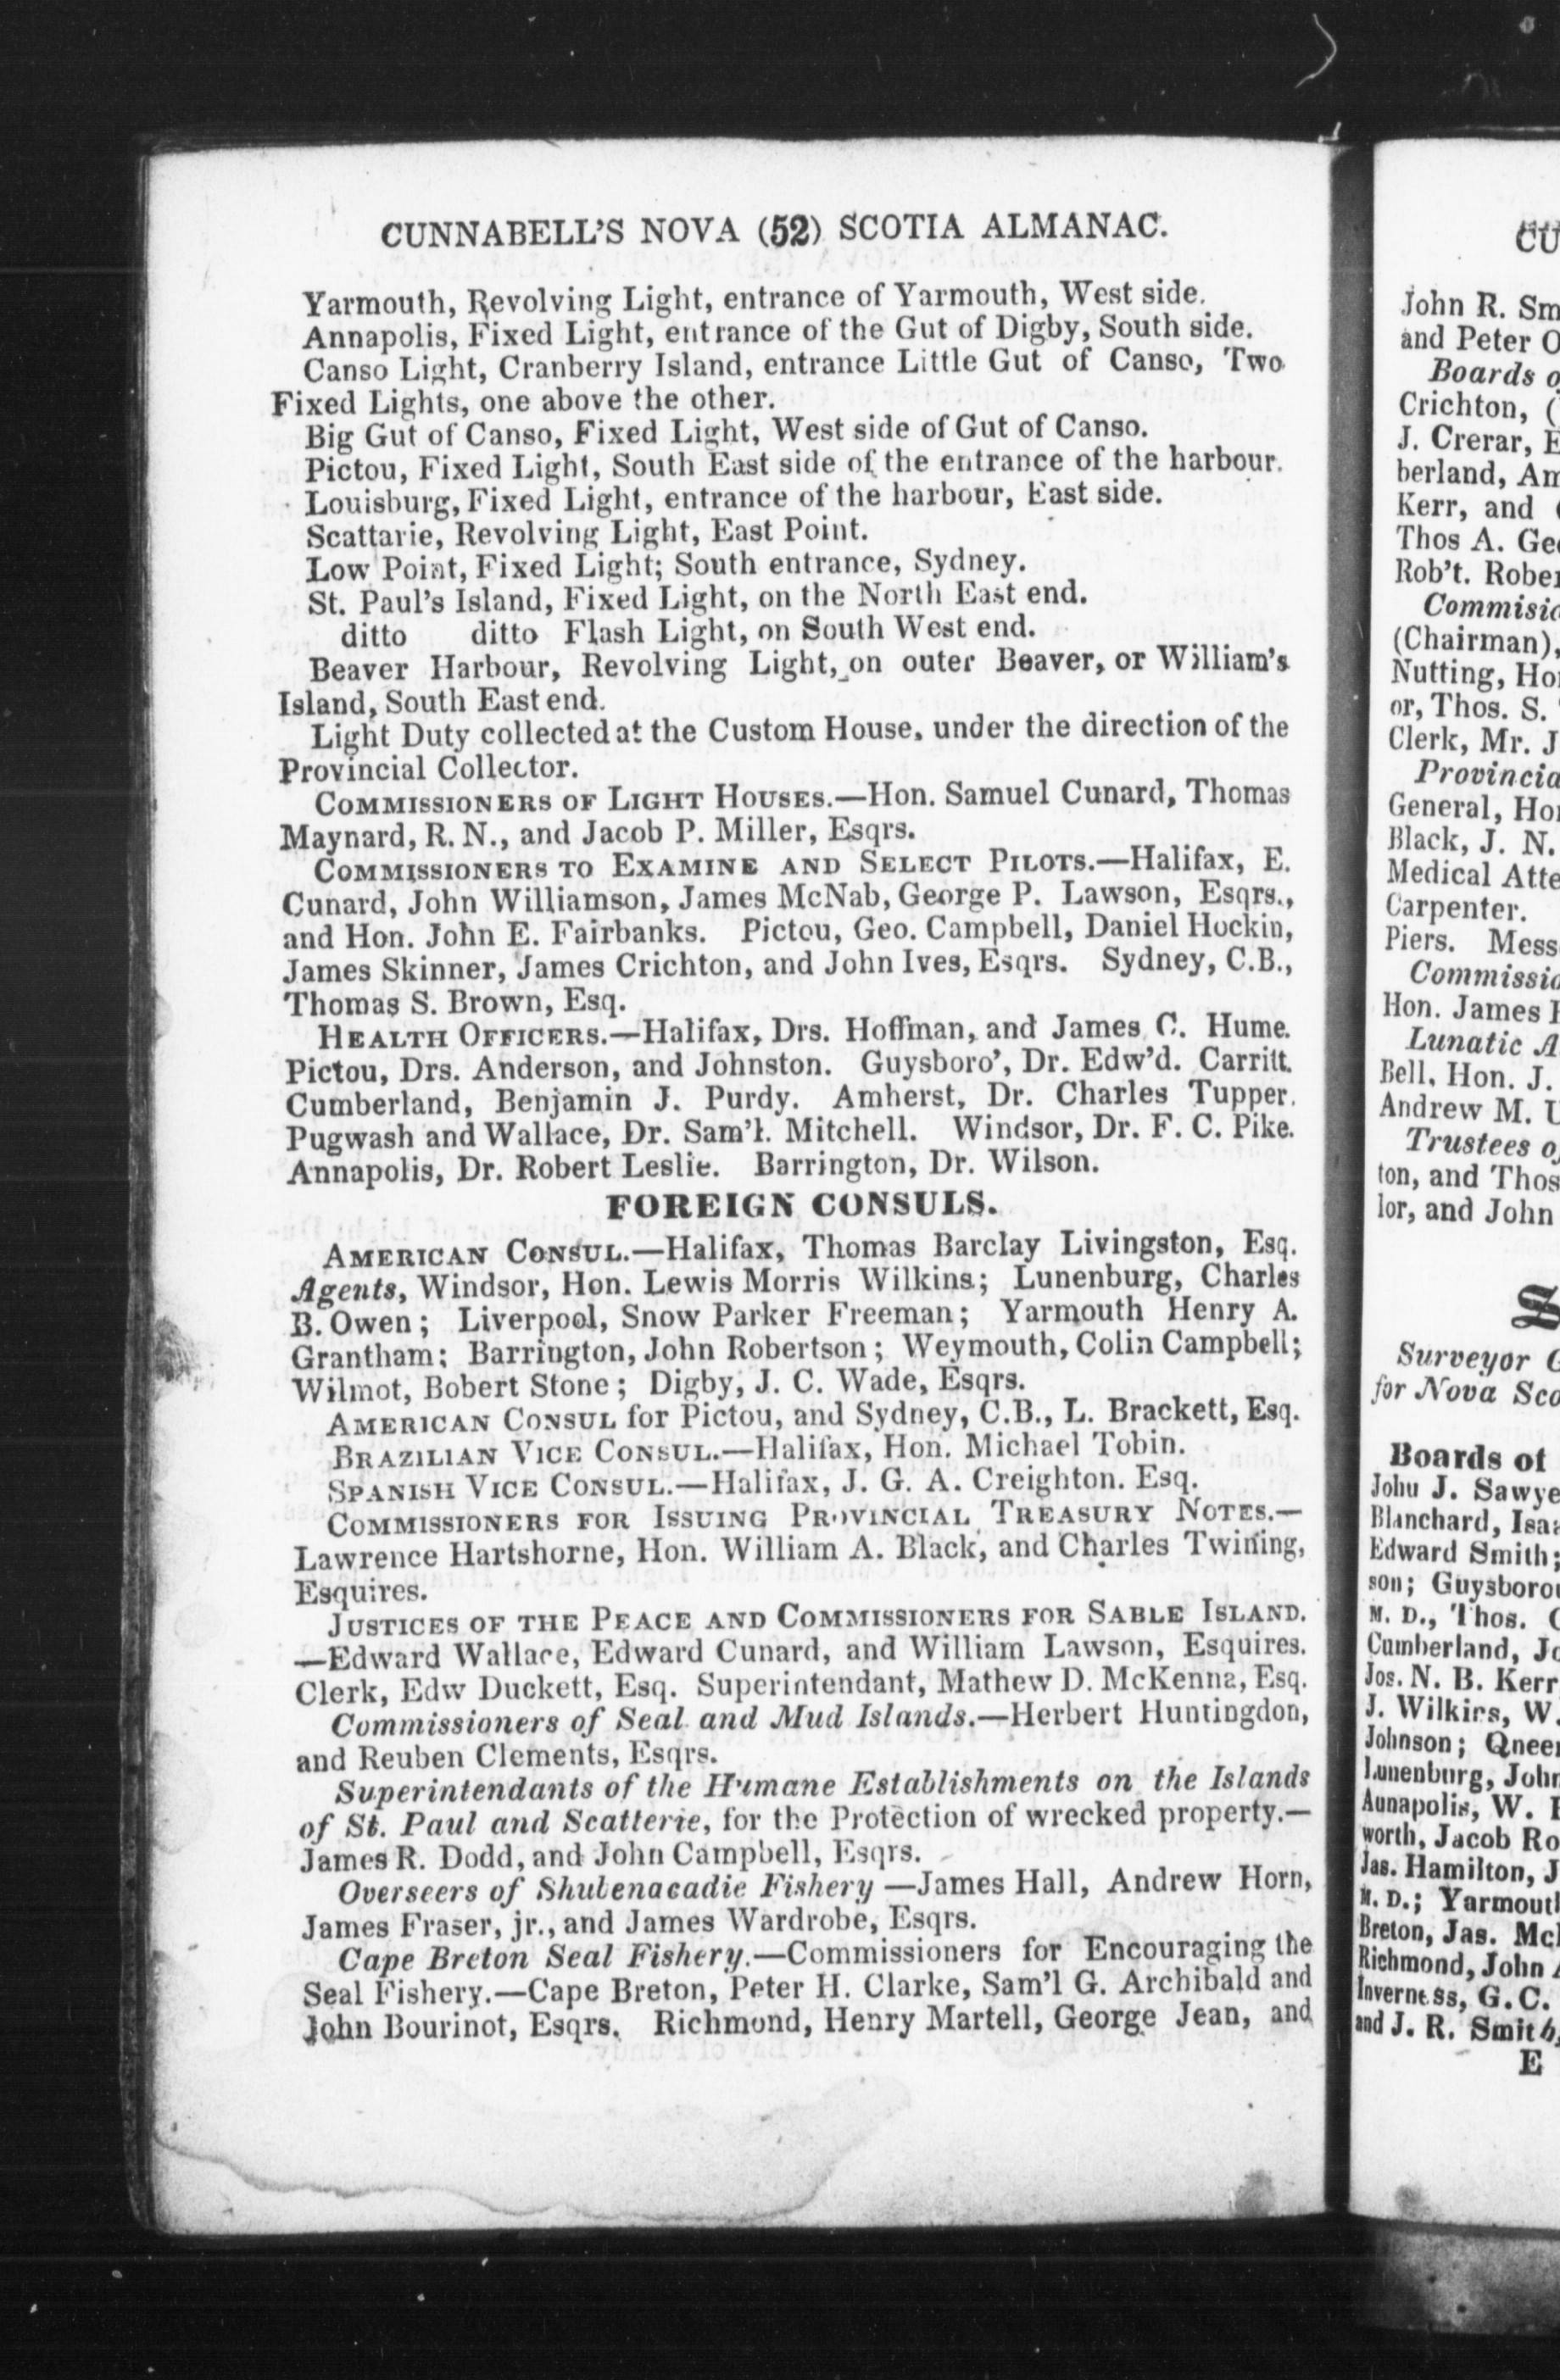 CUNNABELL'S NOVA (52) SCOTIA ALMANAC.
Yarmouth, Revolving Light, entrance of Yarmouth, West side.
Annapolis, Fixed Light, entrance of the Gut of Digby, South side.
Canso Light, Cranberry Island, entrance Little Gut of Canso, Two
Fixed Lights, one above the other.
Big Gut of Canso, Fixed Light, West side of Gut of Canso.
Pictou, Fixed Light, South East side of the entrance of the harbour.
Louisburg, Fixed Light, entrance of the harbour, East side.
Scattarie, Revolving Light, East Point.
Low Point, Fixed Light; South entrance, Sydney.
St. Paul's Island, Fixed Light, on the North East end.
ditto ditto Flash Light, on South West end.
Beaver Harbour, Revolving Light, on outer Beaver, or William's
Island, South East end.
Light Duty collected at the Custom House, under the direction of the
Provincial Collector.
COMMISSIONERS OF LIGHT HOUSES.—Hon. Samuel Cunard, Thomas
Maynard, R. N., and Jacob P. Miller, Esqrs.
COMMISSIONERS TO EXAMINE AND SELECT PILOTS.—Halifax, E.
Cunard, John Williamson, James McNab, George P. Lawson, Esqrs.,
and Hon. John E. Fairbanks. Pictou, Geo. Campbell, Daniel Hockin,
James Skinner, James Crichton, and John Ives, Esqrs. Sydney, C.B.,
Thomas S. Brown, Esq.
HEALTH OFFICERS.—Halifax, Drs. Hoffman, and James C. Hume.
Pictou, Drs. Anderson, and Johnston. Guysboro', Dr. Edw'd. Carritt.
Cumberland, Benjamin J. Purdy. Amherst, Dr. Charles Tupper.
Pugwash and Wallace, Dr. Sam'l. Mitchell. Windsor, Dr. F. C. Pike.
Annapolis, Dr. Robert Leslie. Barrington, Dr. Wilson.
FOREIGN CONSULS.
AMERICAN CONSUL.—Halifax, Thomas Barclay Livingston, Esq.
Agents, Windsor, Hon. Lewis Morris Wilkins; Lunenburg, Charles
B. Owen; Liverpool, Snow Parker Freeman; Yarmouth Henry A.
Grantham; Barrington, John Robertson; Weymouth, Colin Campbell;
Wilmot, Bobert Stone; Digby, J. C. Wade, Esqrs.
AMERICAN CONSUL for Pictou, and Sydney, C.B., L. Brackett, Esq.
BRAZILIAN VICE CONSUL.—Halifax, Hon. Michael Tobin.
SPANISH VICE CONSUL.—Halifax, J. G. A. Creighton. Esq.
COMMISSIONERS FOR ISSUING PROVINCIAL TREASURY NOTES.—
Lawrence Hartshorne, Hon. William A. Black, and Charles Twining,
Esquires.
JUSTICES OF THE PEACE AND COMMISSIONERS FOR SABLE ISLAND.
—Edward Wallace, Edward Cunard, and William Lawson, Esquires.
Clerk, Edw Duckett, Esq. Superintendant, Mathew D. McKenna, Esq.
Commissioners of Seal and Mud Islands.—Herbert Huntingdon,
and Reuben Clements, Esqrs.
Superintendants of the Humane Establishments on the Islands
of St. Paul and Scatterie, for the Protection of wrecked property.—
James R. Dodd, and John Campbell, Esqrs.
Overseers of Shubenacadie Fishery —James Hall, Andrew Horn,
James Fraser, jr., and James Wardrobe, Esqrs.
Cape Breton Seal Fishery.—Commissioners for Encouraging the
Seal Fishery.—Cape Breton, Peter H. Clarke, Sam'l G. Archibald and
John Bourinot, Esqrs. Richmond, Henry Martell, George Jean, and
CU
John R. Sm
and Peter O
Boards o
Crichton, (
J. Crerar, E
berland, Am
Kerr, and
Thos A. Geo
Rob't. Rober
Commisio
(Chairman),
Nutting, Hon
or, Thos. S.
Clerk, Mr. J
Provincia
General, Hon
Black, J. N.
Medical Atte
Carpenter.
Piers. Mess
Commissio
Hon. James
Lunatic A
Bell, Hon. J.
Andrew M. U
Trustees o
ton, and Thos
lor, and John
S
Surveyor G
for Nova Sco
Boards of
John J. Sawye
Blanchard, Isaa
Edward Smith;
son; Guysborou
M. D., Thos. C
Cumberland, Jo
Jos. N. B. Kerr
J. Wilkins, W.
Johnson; Queen
Lunenburg, John
Annapolis, W.
worth, Jacob Ro
Jas. Hamilton, J
M. D.; Yarmouth
Breton, Jas. McK
Richmond, John A
Inverness, G. C.
and J. R. Smith,
E